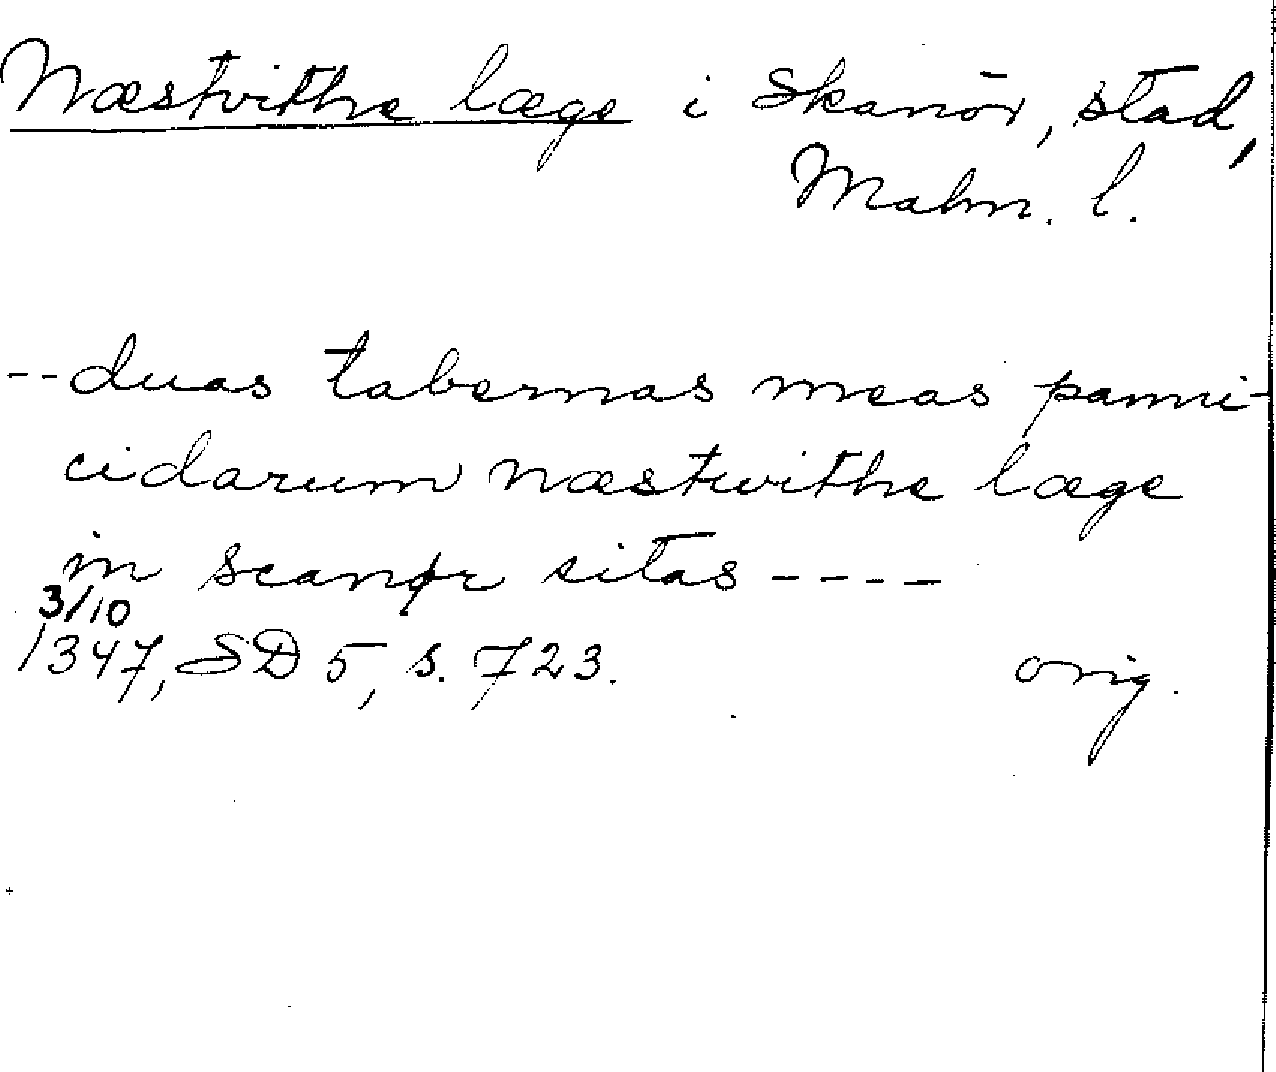 Næstvithe læge i Skanör, stad,
Malm. l.
-- duas tabernas meas panni-
cidarum næstwithe læge
in scanør sitas ----
3/10
1347, SD 5, s. 723. orig.